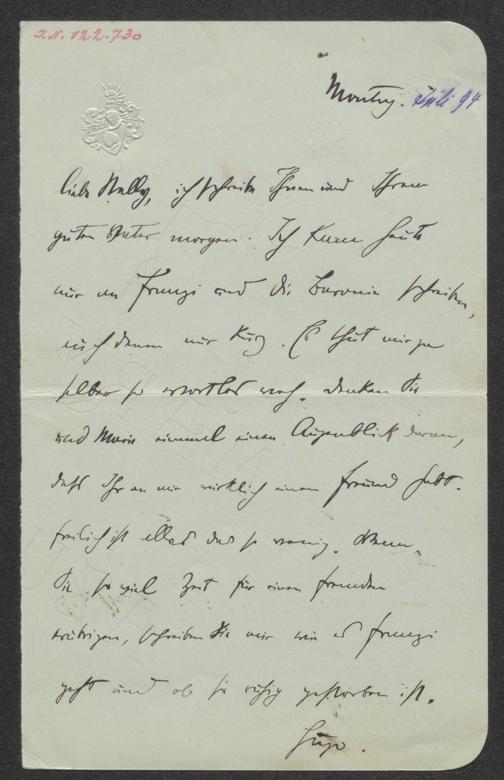 I.N. 122.730
Montag. Juli 94
liebe Nelly, ich schreibe Ihnen und Ihrem
guten Vater morgen. Ich kann heute
nur an Franzi und die Baronin schreiben,
auch denen nur kurz. Es thut mir ja
selber so wortlos weh. Denken Sie
und Marie einmal einen Augenblick daran,
dass Ihr an mir wirklich einen Freund habt.
freilich ist alles das so wenig. Wenn
Sie so viel Zeit für einen fremden
erübrigen, schreiben Sie mir wie es Franzi
geht und ob sie ruhig gestorben ist.
Hugo.